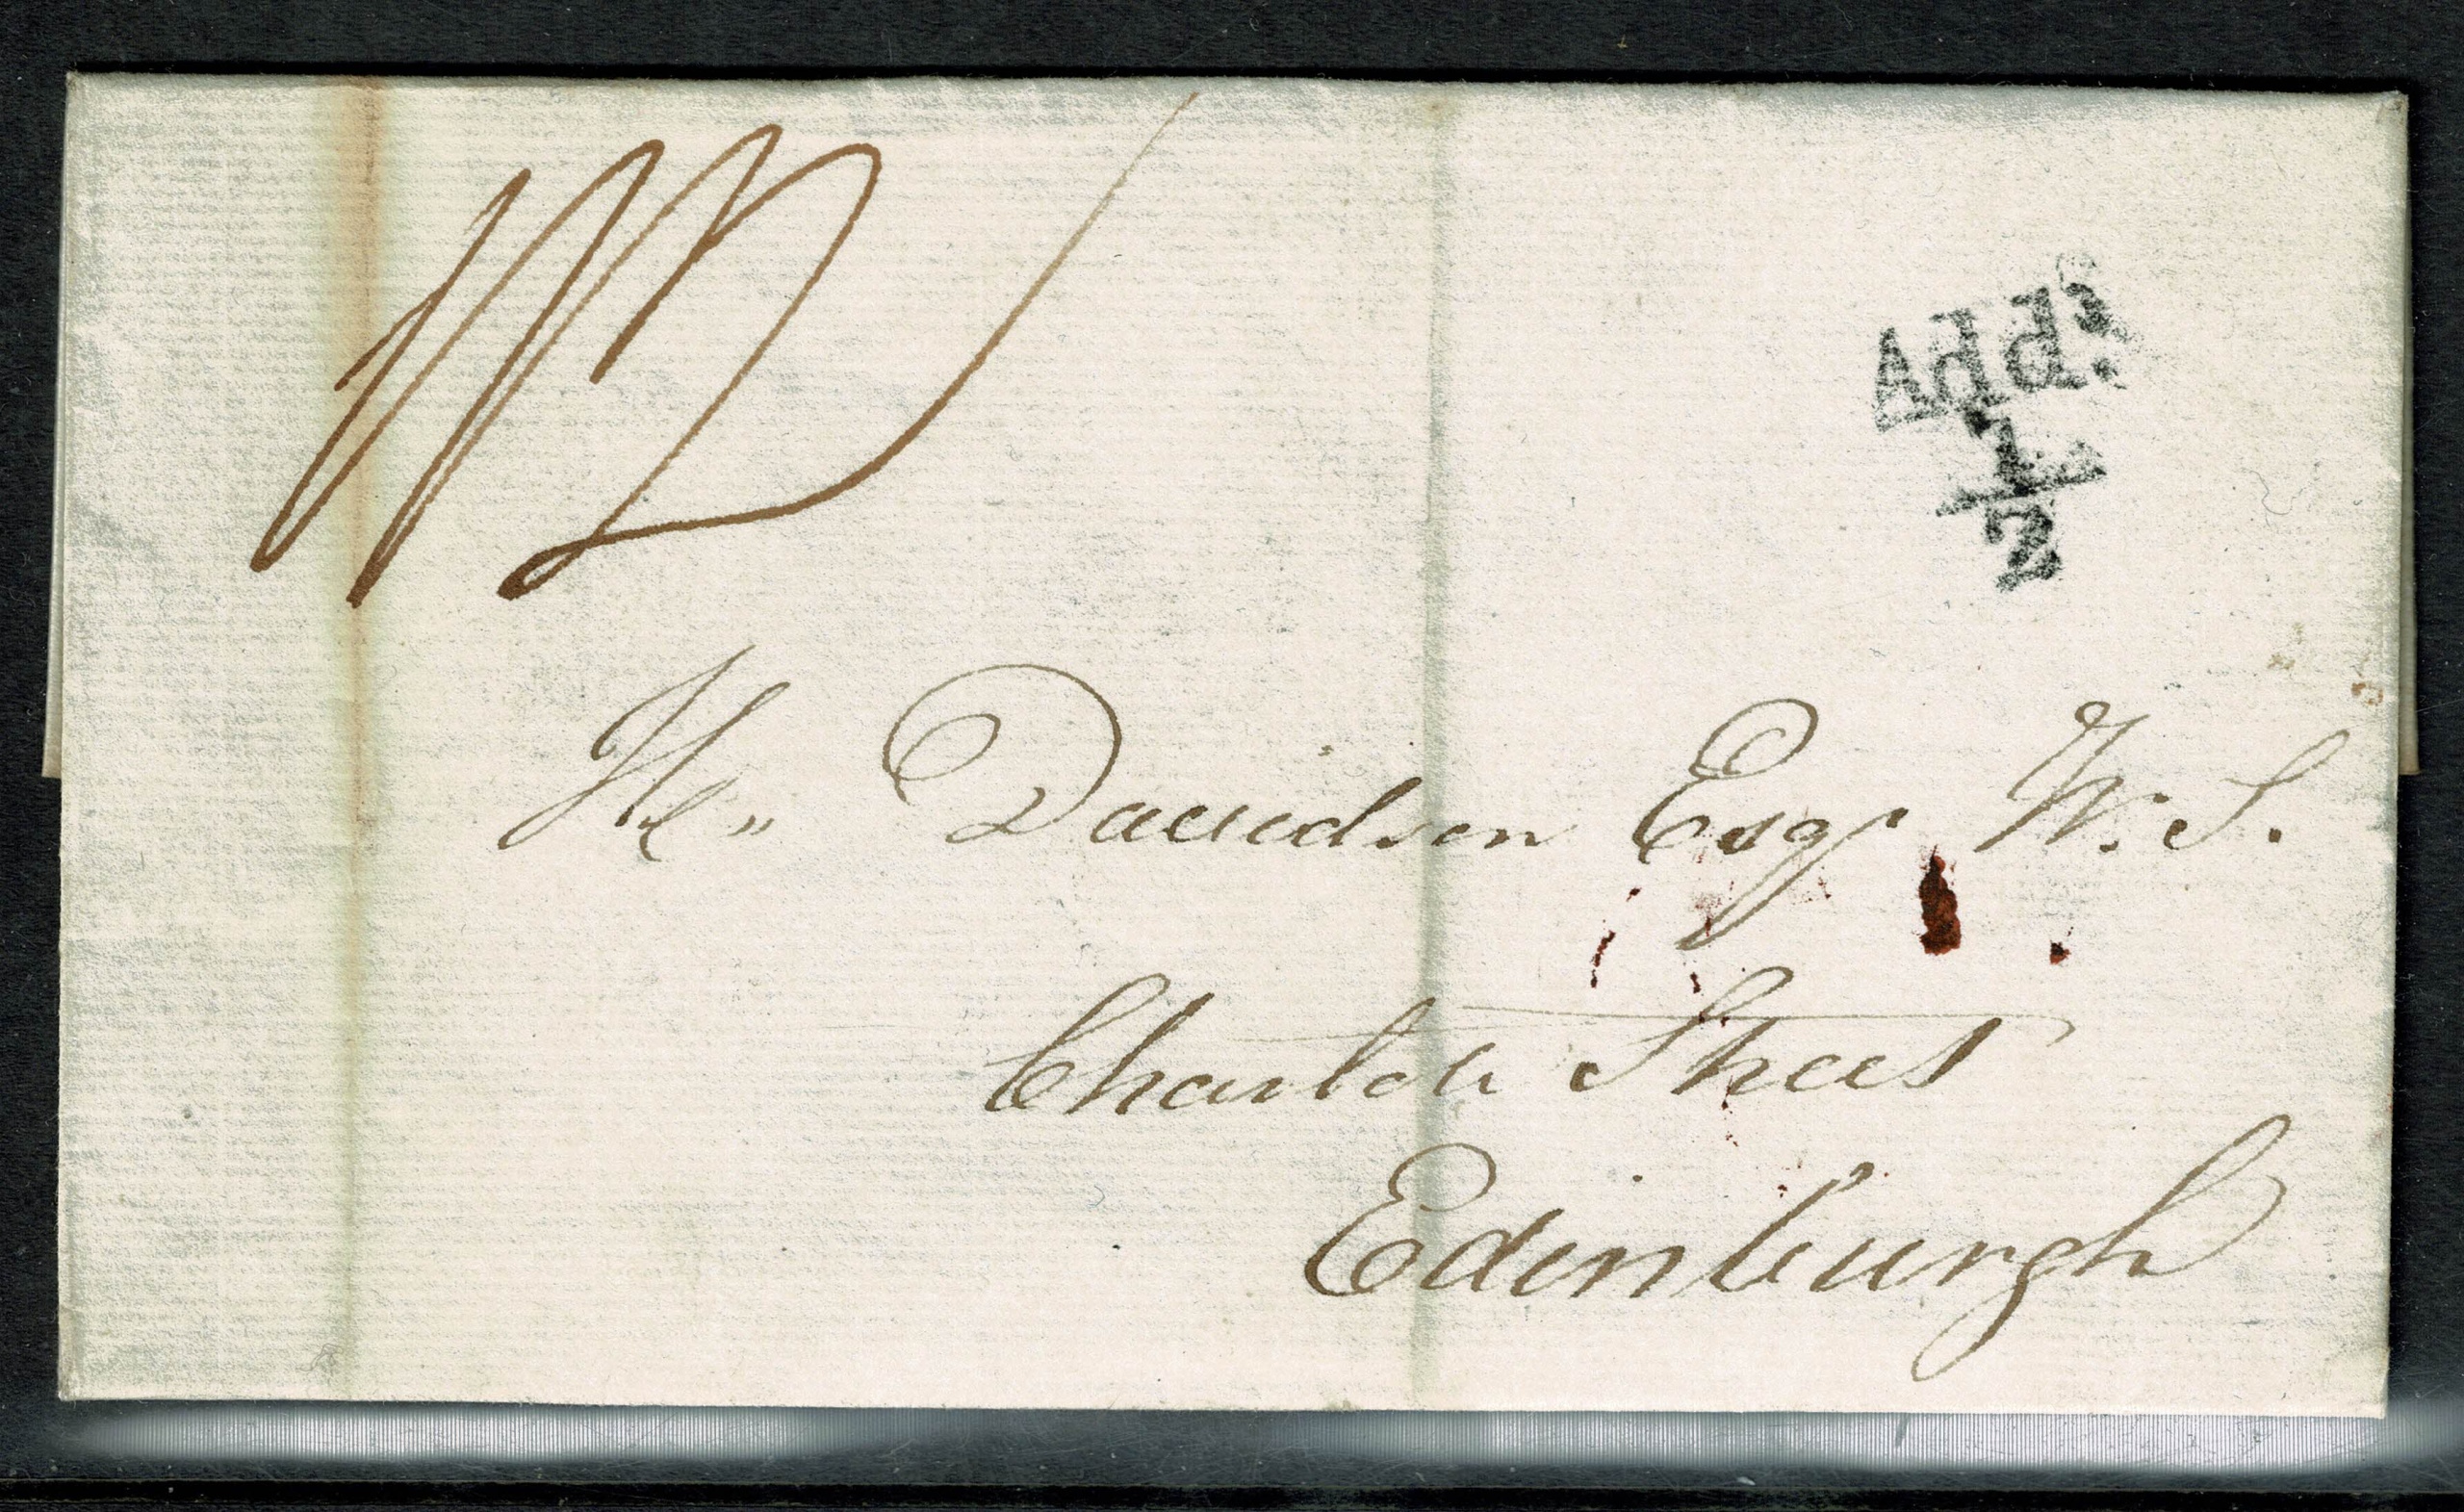 Addl.
1
2
H,, Davidson Esqr. W. S.
Charlotte Street
Edinburgh